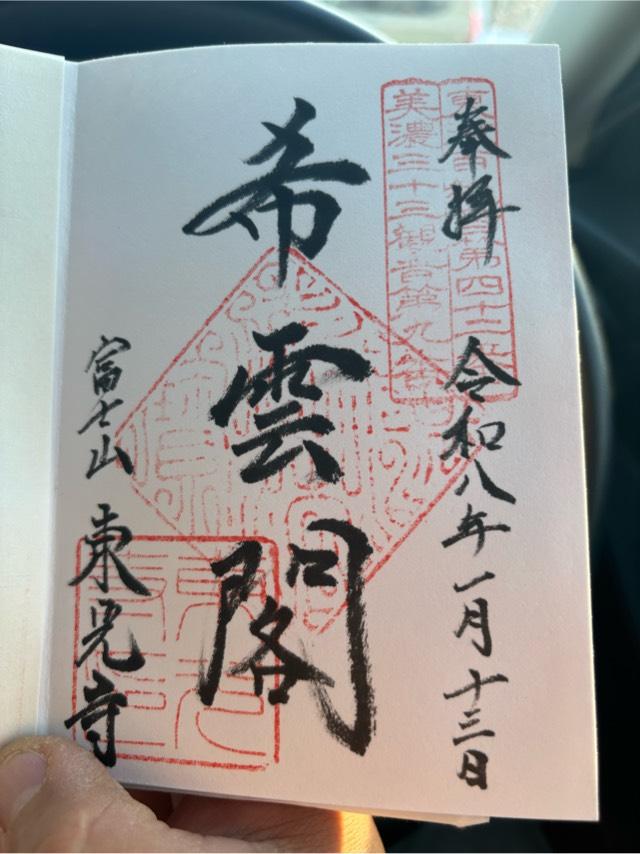 奉拝 令和八年一月十三日
第四十二番
美濃三十三観音第九番
希雲閣
富士山 東光寺